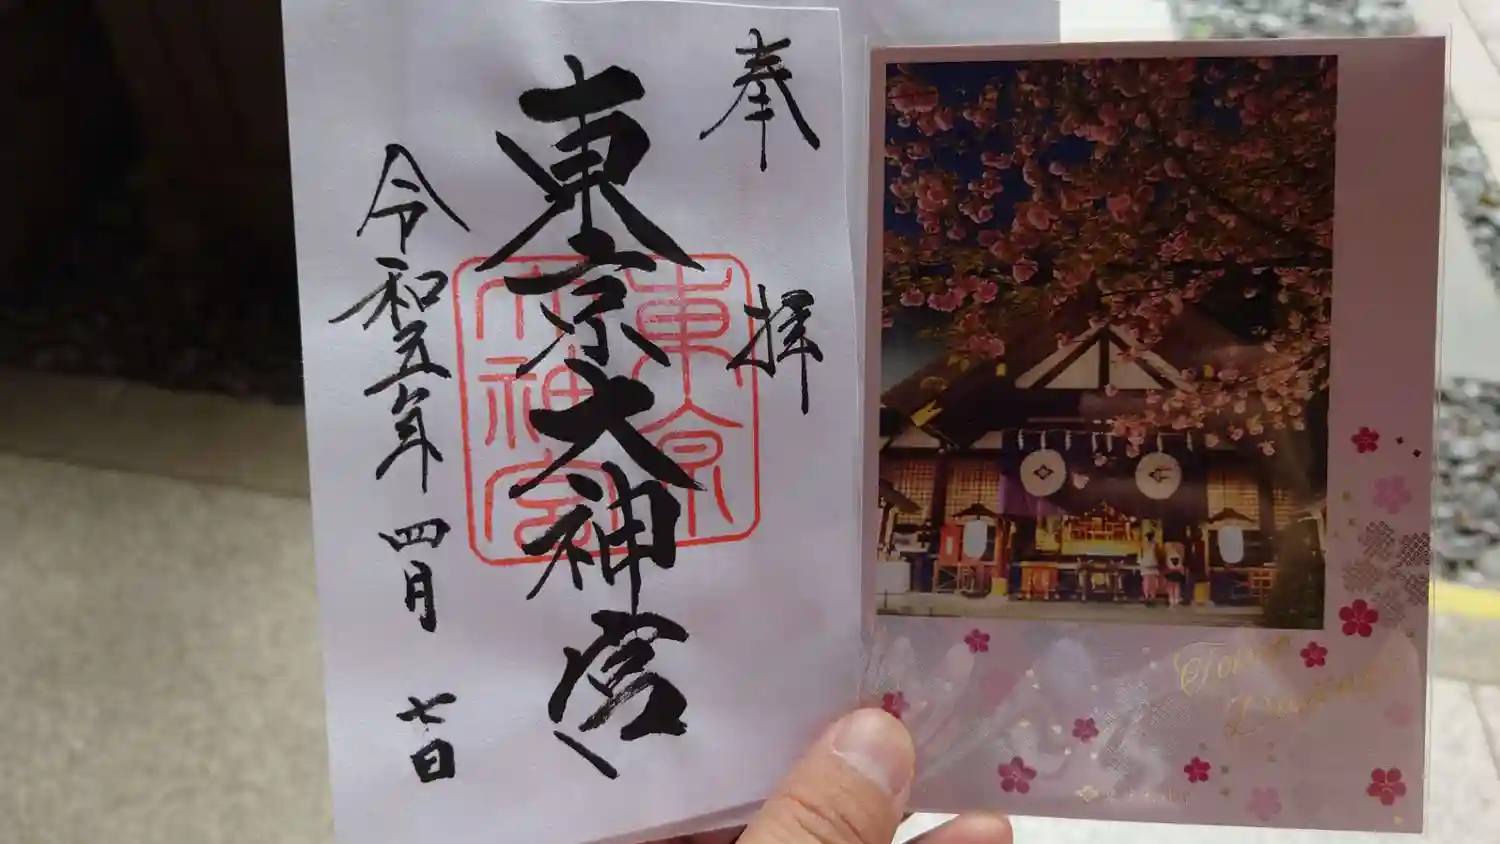 奉拝
東京大神宮
東京
大神宮
令和五年四月七日